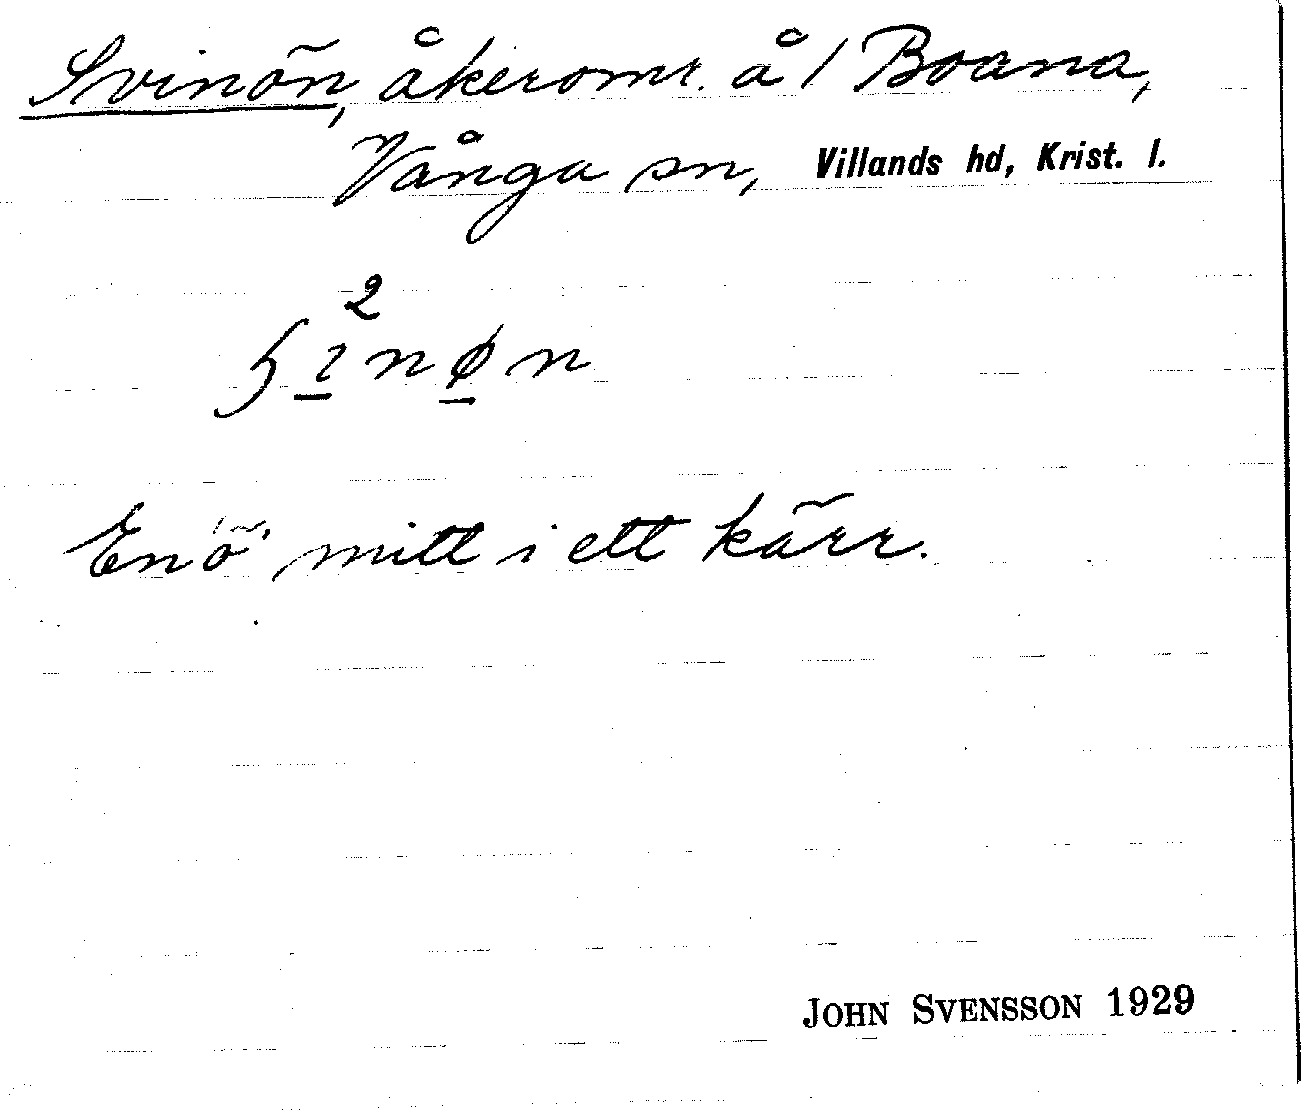 Svinön, åkeromr. å 1 Boana,
Vånga sn, Villands hd, Krist. l.
2
ɧɩnøn
En "ö" mitt i ett kärr.
JOHN SVENSSON 1929